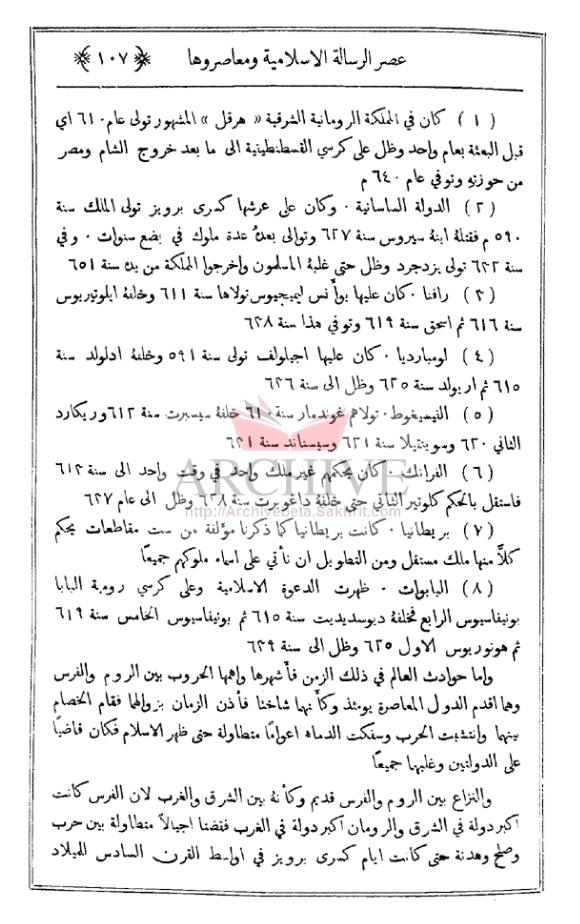 عصر الرسالة الاسلامية ومعاصروها ﴿ ١٠٧ ﴾
( ١ ) كان في المملكة الرومانية الشرقية « هرقل » المشهور تولى عام ٦١٠ اي
قبل البعثة بعام واحد وظل على كرسي القسطنطينية الى ما بعد خروج الشام ومصر
من حوزته وتوفي عام ٦٤٠ م
( ٢ ) الدولة الساسانية . وكان على عرشها كسرى برويز تولى الملك سنة
٥٩٠ م فقتله ابنه سيروس سنة ٦٢٧ وتوالى بعده عدة ملوك في بضع سنوات . وفي
سنة ٦٣٢ تولى يزدجرد وظل حتى غلبه المسلمون واخرجوا المملكة من يده سنة ٦٥١
( ٣ ) رافنا . كان عليها يوأنس ليميجيوس تولاها سنة ٦١١ وخلفه ايلوتيريوس
سنة ٦١٦ ثم اسحق سنة ٦١٩ وتوفي هذا سنة ٦٣٨
( ٤ ) لومبارديا . كان عليها اجيلولف تولى سنة ٥٩١ وخلفه ادلولد سنة
٦١٥ ثم اريولد سنة ٦٢٥ وظل الى سنة ٦٣٦
( ٥ ) الفيسيغوط . تولاهم غوندمار سنة ٦١٠ خلفه سيسبرت سنة ٦١٢ وريكارد
الثاني ٦٢٠ وسوينتيلا سنة ٦٢١ وسيسناند سنة ٦٣١
( ٦ ) الفرانك . كان يحكمهم غير ملك واحد في وقت واحد الى سنة ٦١٣
فاستقل بالحكم كلوتير الثاني حتى خلفه داغوبرت سنة ٦٢٨ وظل الى عام ٦٣٧
( ٧ ) بريطانيا . كانت بريطانيا كما ذكرنا مؤلفة من ست مقاطعات يحكم
كلاًّ منها ملك مستقل ومن التطويل ان نأتي على اسماء ملوكهم جميعًا
( ٨ ) البابوات . ظهرت الدعوة الاسلامية وعلى كرسي رومية البابا
بونيفاسيوس الرابع فخلفه ديوسديديت سنة ٦١٥ ثم بونيفاسيوس الخامس سنة ٦١٩
ثم هونوريوس الاول ٦٢٥ وظل الى سنة ٦٣٩
واما حوادث العالم في ذلك الزمن فأشهرها واهمها الحروب بين الروم والفرس
وهما اقدم الدول المعاصرة يومئذ وكأنهما شاختا فأذن الزمان بزوالهما فقام الخصام
بينهما وانتشبت الحرب وسفكت الدماء اعوامًا متطاولة حتى ظهر الاسلام فكان قاضيًا
على الدولتين وغلبهما جميعًا
والنزاع بين الروم والفرس قديم وكأنه بين الشرق والغرب لان الفرس كانت
اكبر دولة في الشرق والرومان اكبر دولة في الغرب فقضتا اجيالاً متطاولة بين حرب
وصلح وهدنة حتى كانت ايام كسرى برويز في اواسط القرن السادس للميلاد
ARCHIVE
http://Archivebeta.Sakhrit.com